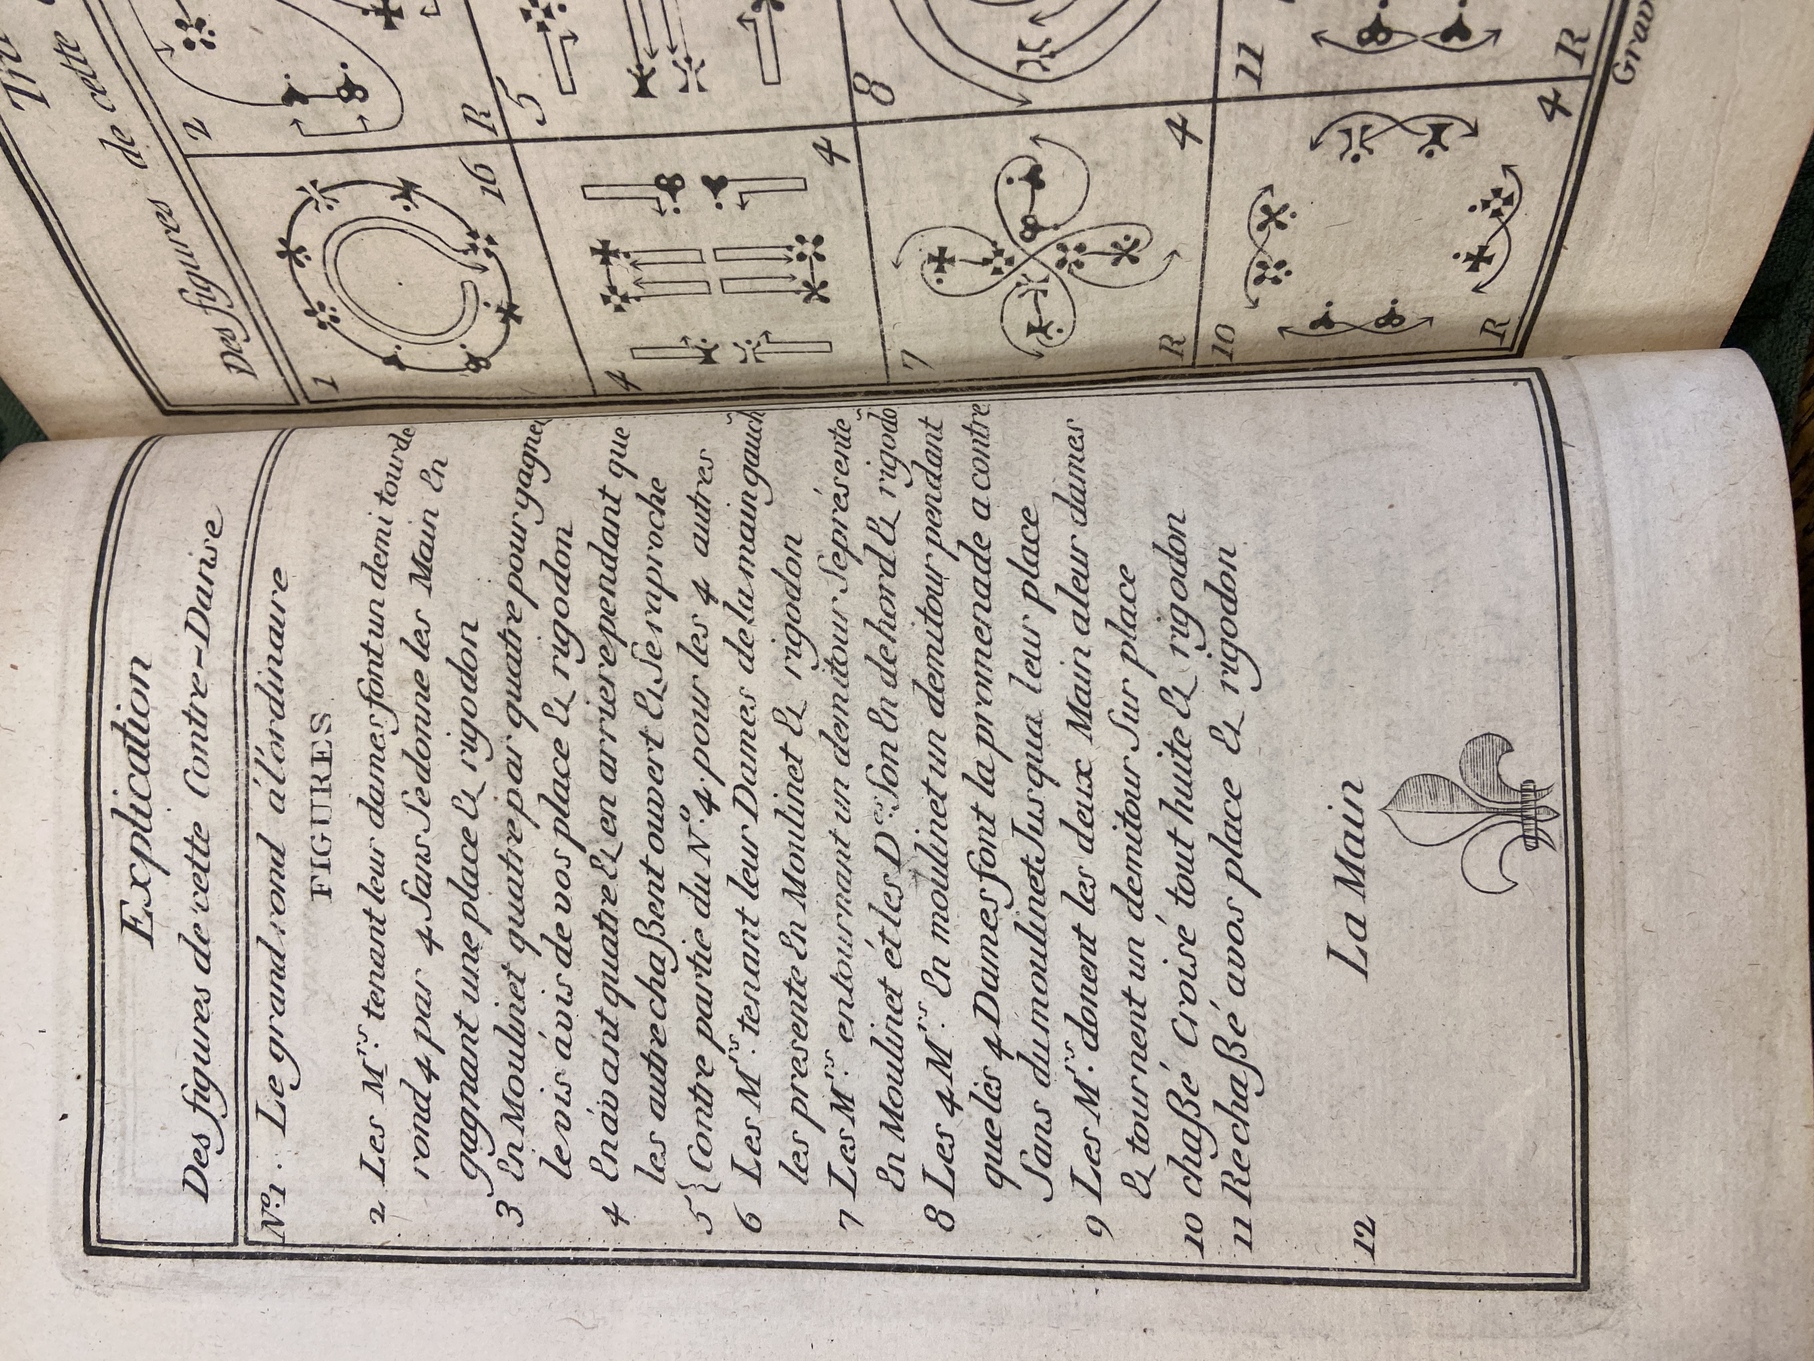 Explication
Des figures de cette Contre-Danse
Nº1. Le grand rond á l'ordinaire
FIGURES
2 Les Mrs. tenant leur dames font un demi tour de
rond 4 par 4 Sans Se donne les Main En
gagnant une place & rigodon
3 En Moulinet quatre par quatre pour gagner
le vis ávis de vos place & rigodon
4 En áv ant quatre & en arriere pendant que
les autre chaßent ouvert & Se raproche
5 { Contre partie du Nº. 4. pour les 4 autres
6 Les Mrs. tenant leur Dames de la main gauch
les presente En Moulinet & rigodon
7 Les Mrs. entournant un demitour Se présente
En Moulinet ét les Des. Son En dehord & rigodo
8 Les 4 Mrs. En moulinet un demitour pendant
que les 4 Dames font la promenade a contre
Sans du moulinet Jusqua leur place
9 Les Mrs. donent les deux Main a leur dames
& tournent un demitour Sur place
10 chaßé Croisé tout huite & rigodon
11 Rechaßé avos place & rigodon
12 La Main
de cette
Des figures
1
16
2
R
4
4
5
7
R
4
8
10
R
4
11
R
Grav